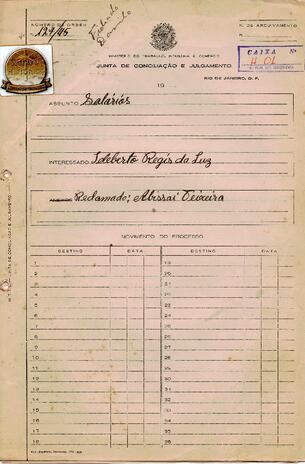 NUMERO DE ORDEM
129/45
N. DE ARQUIVAMENTO
MINISTERIO DO TRABALHO, INDUSTRIA E COMERCIO
JUNTA DE CONCILIAÇÃO E JULGAMENTO
RIO DE JANEIRO, D. F.
CAIXA Nº
H 01
19
ASSUNTO Salários
INTERESSADO Ideberto Regis da Luz
Reclamado; Abissai Teixeira
MOVIMENTO DO PROCESSO
DESTINO DATA DESTINO DATA
1
2
3
4
5
6
7
8
9
10
11
12
13
14
15
16
17
18
19
20
21
22
23
24
25
26
27
28
29
30
31
32
33
34
35
36